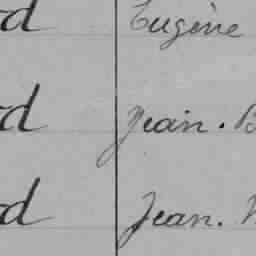 rd Eugène
rd Jean. B
rd Jean.